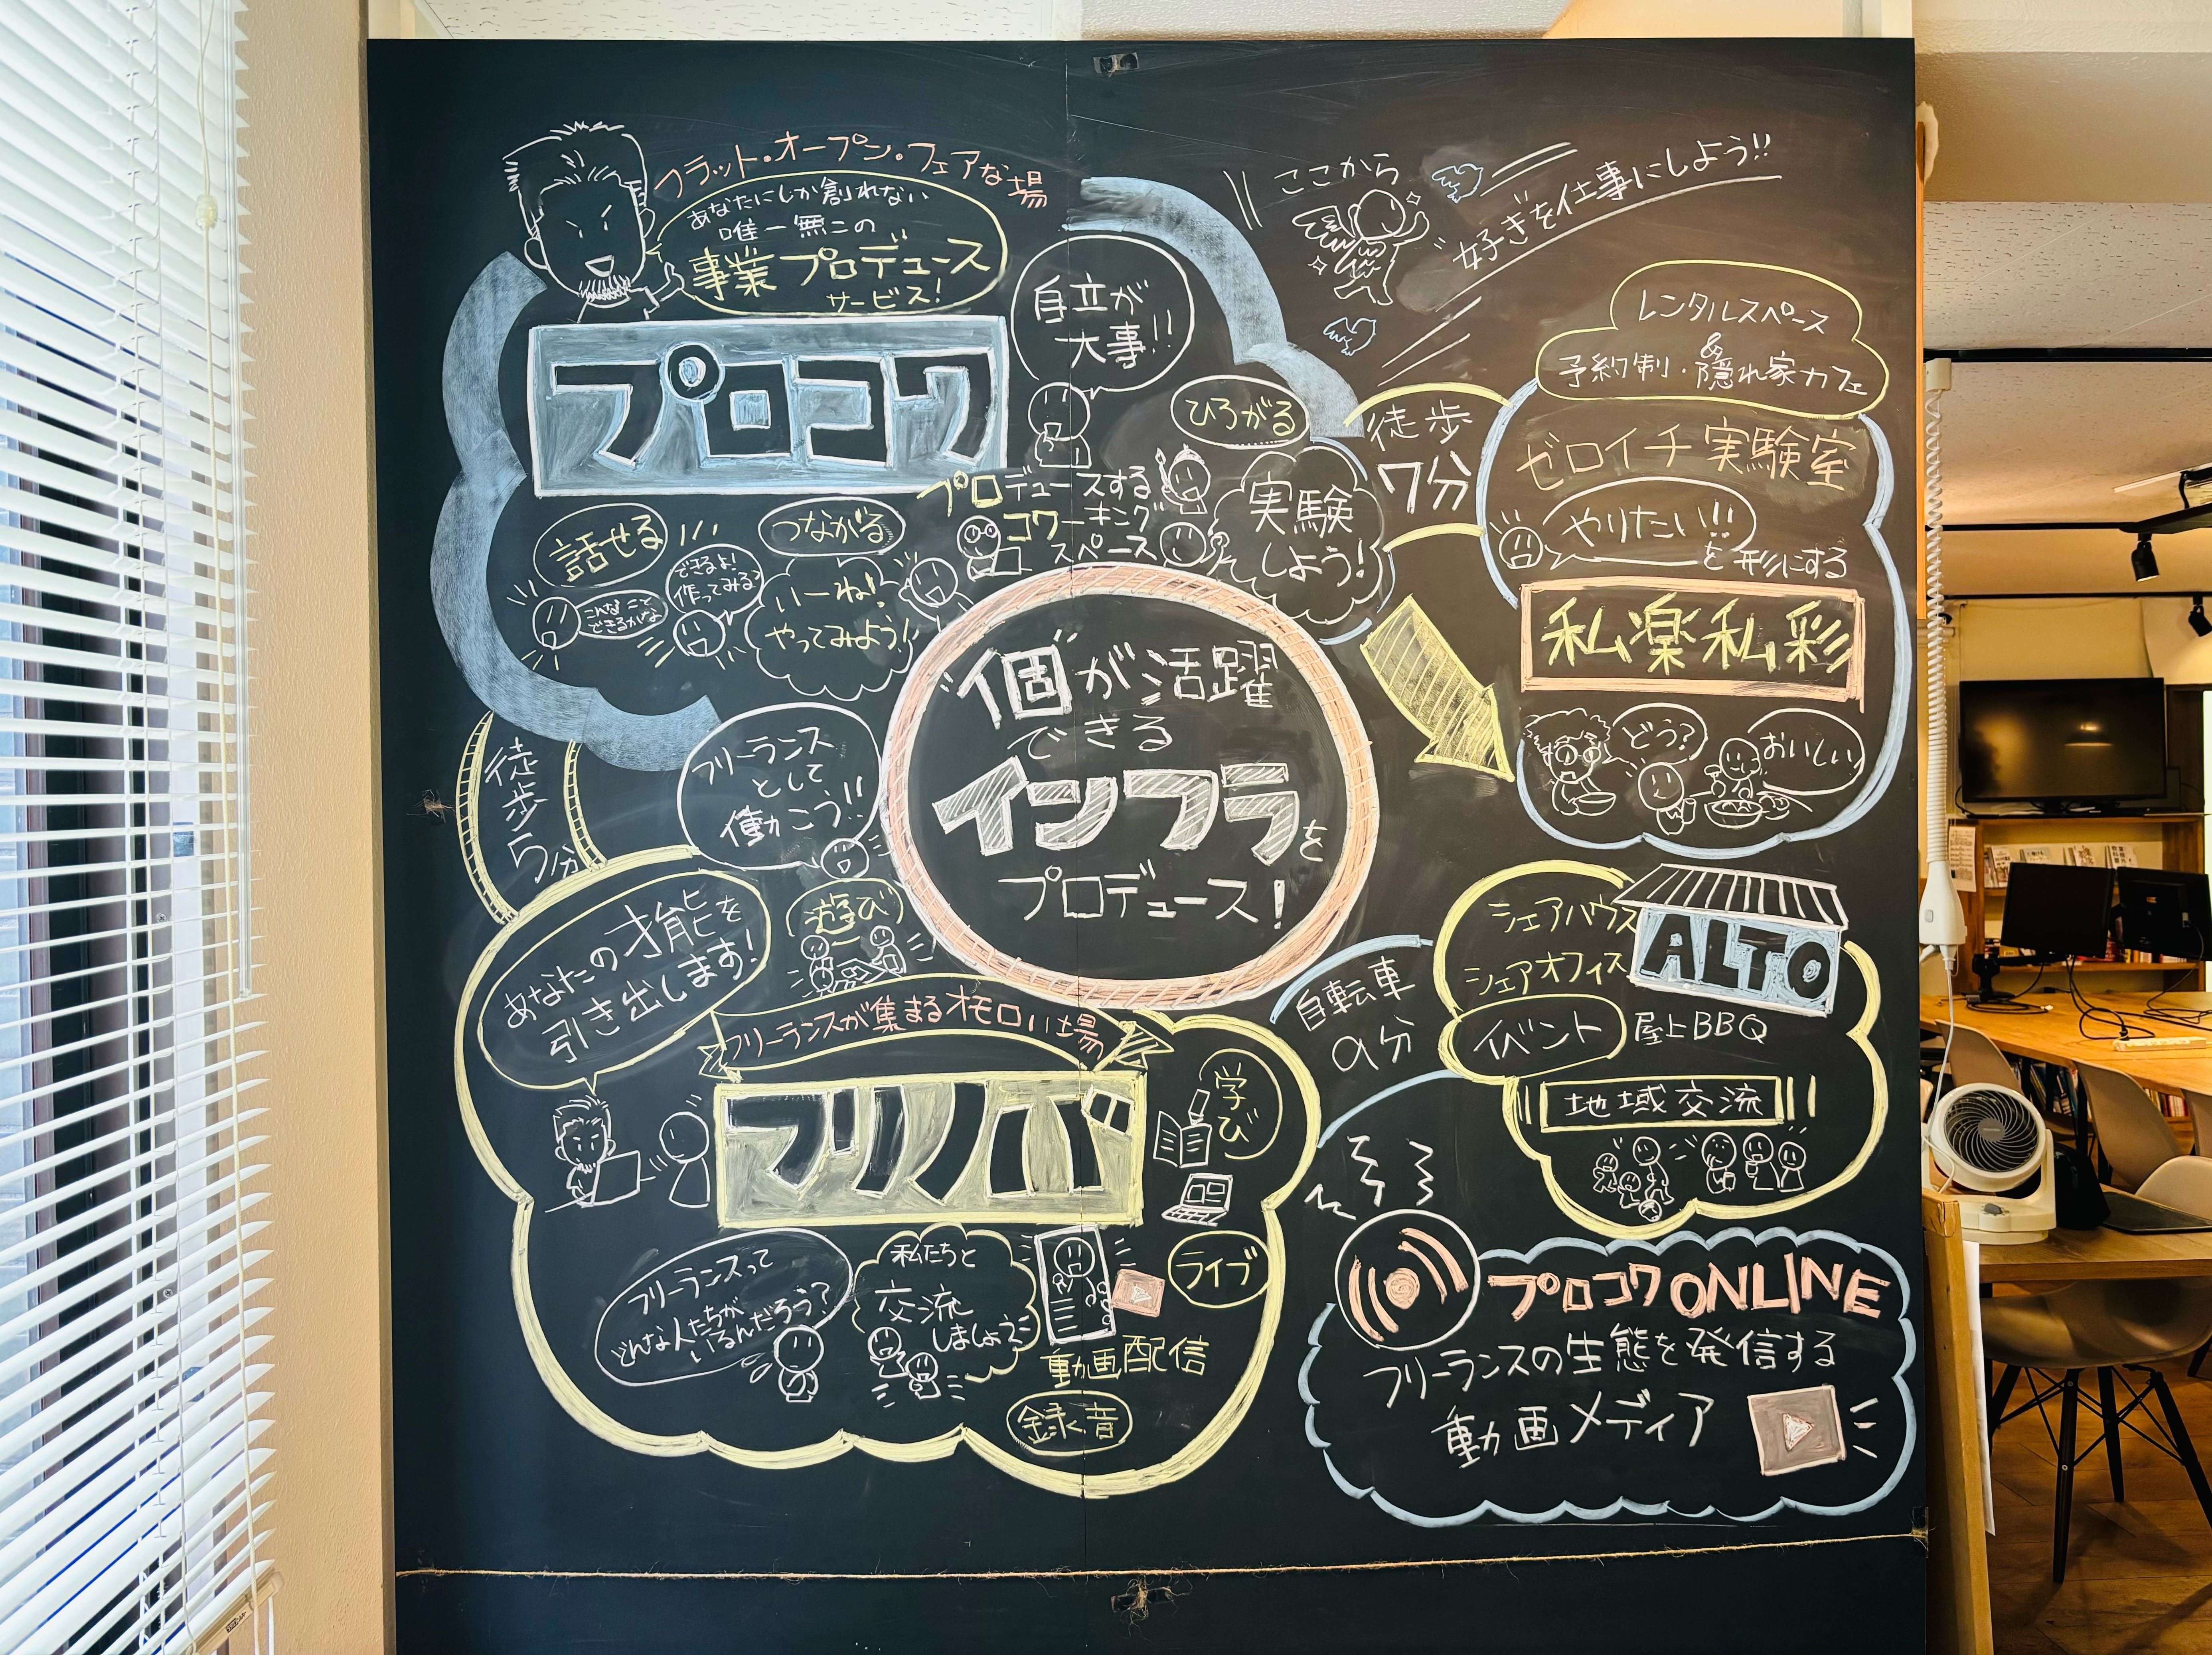 フラット・オープン・フェアな場
あなたにしか創れない
唯一無二の
事業プロデュース
サービス!
プロコワ
自立が
大事!!
ここから
好きを仕事にしよう!!
ひろがる
プロデュースする
コワーキング
スペース
実験
しよう!
話せる
こんなこと
できるかな
できるよ!
作ってみる?
つながる
いーね!
やってみよう!
徒歩
7分
レンタルスペース
&
予約制・隠れ家カフェ
ゼロイチ実験室
やりたい!!
を形にする
私楽私彩
どう?
おいしい!
個が活躍
できる
インフラを
プロデュース!
徒歩
5分
フリーランス
として
働こう!!
あなたの才能を
引き出します!
遊び
フリーランスが集まるオモロい場
フリノバ
学び
フリーランスって
どんな人たちが
いるんだろう?
私たちと
交流
しましょう
ライブ
動画配信
録音
自転車
9分
シェアハウス
シェアオフィス
ALTO
イベント
屋上BBQ
地域交流
プロコワONLINE
フリーランスの生態を発信する
動画メディア